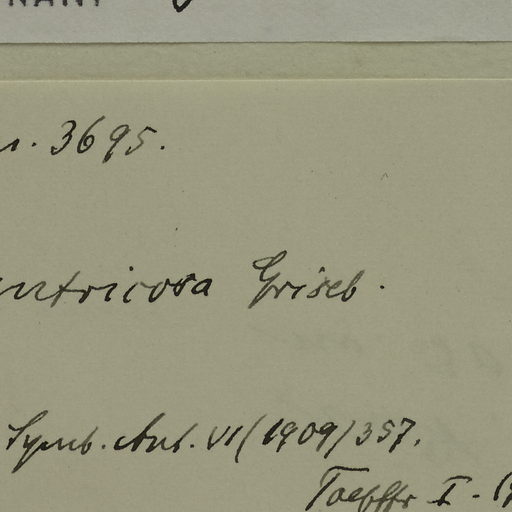 NANT
n. 3695.
entricosa Griseb.
Symb. Ant. VI (1909) 357.
Toepffr I. 19